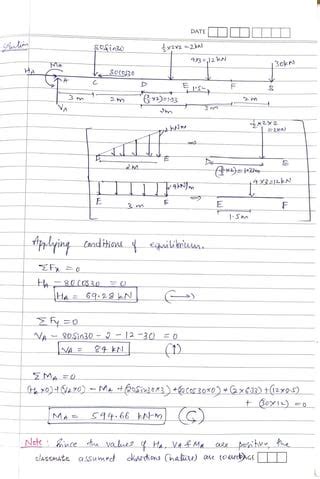 DATE
Solution
80sin30
½×2×2 = 2kN
4×3 = 12kN
30kN
MA
HA
A
80cos30
C
D
E
1.5m
F
B
VA
3m
2m
(⅔×2)=1.33
2m
3m
2m
2kN/m
½×2×2
=2kN
D
E
2m
(⅔×2)=1.33m
4kN/m
4×3=12kN
E
F
3m
E
F
1.5m
Applying conditions of equilibrium.
ΣFx = 0
HA - 80cos30 = 0
HA = 69.28 kN (→)
ΣFy = 0
VA - 80sin30 - 2 - 12 - 30 = 0
VA = 84 kN (↑)
ΣMA = 0
(HA×0)+(VA×0) - MA + (80sin30×3)+(80cos30×0)+(2×6.33)+(12×8.5)
+ (30×12) = 0
MA = 594.66 kN-m
Note: Since the values of HA, VA & MA are positive, the
classmate assumed directions (nature) are correct. PAGE